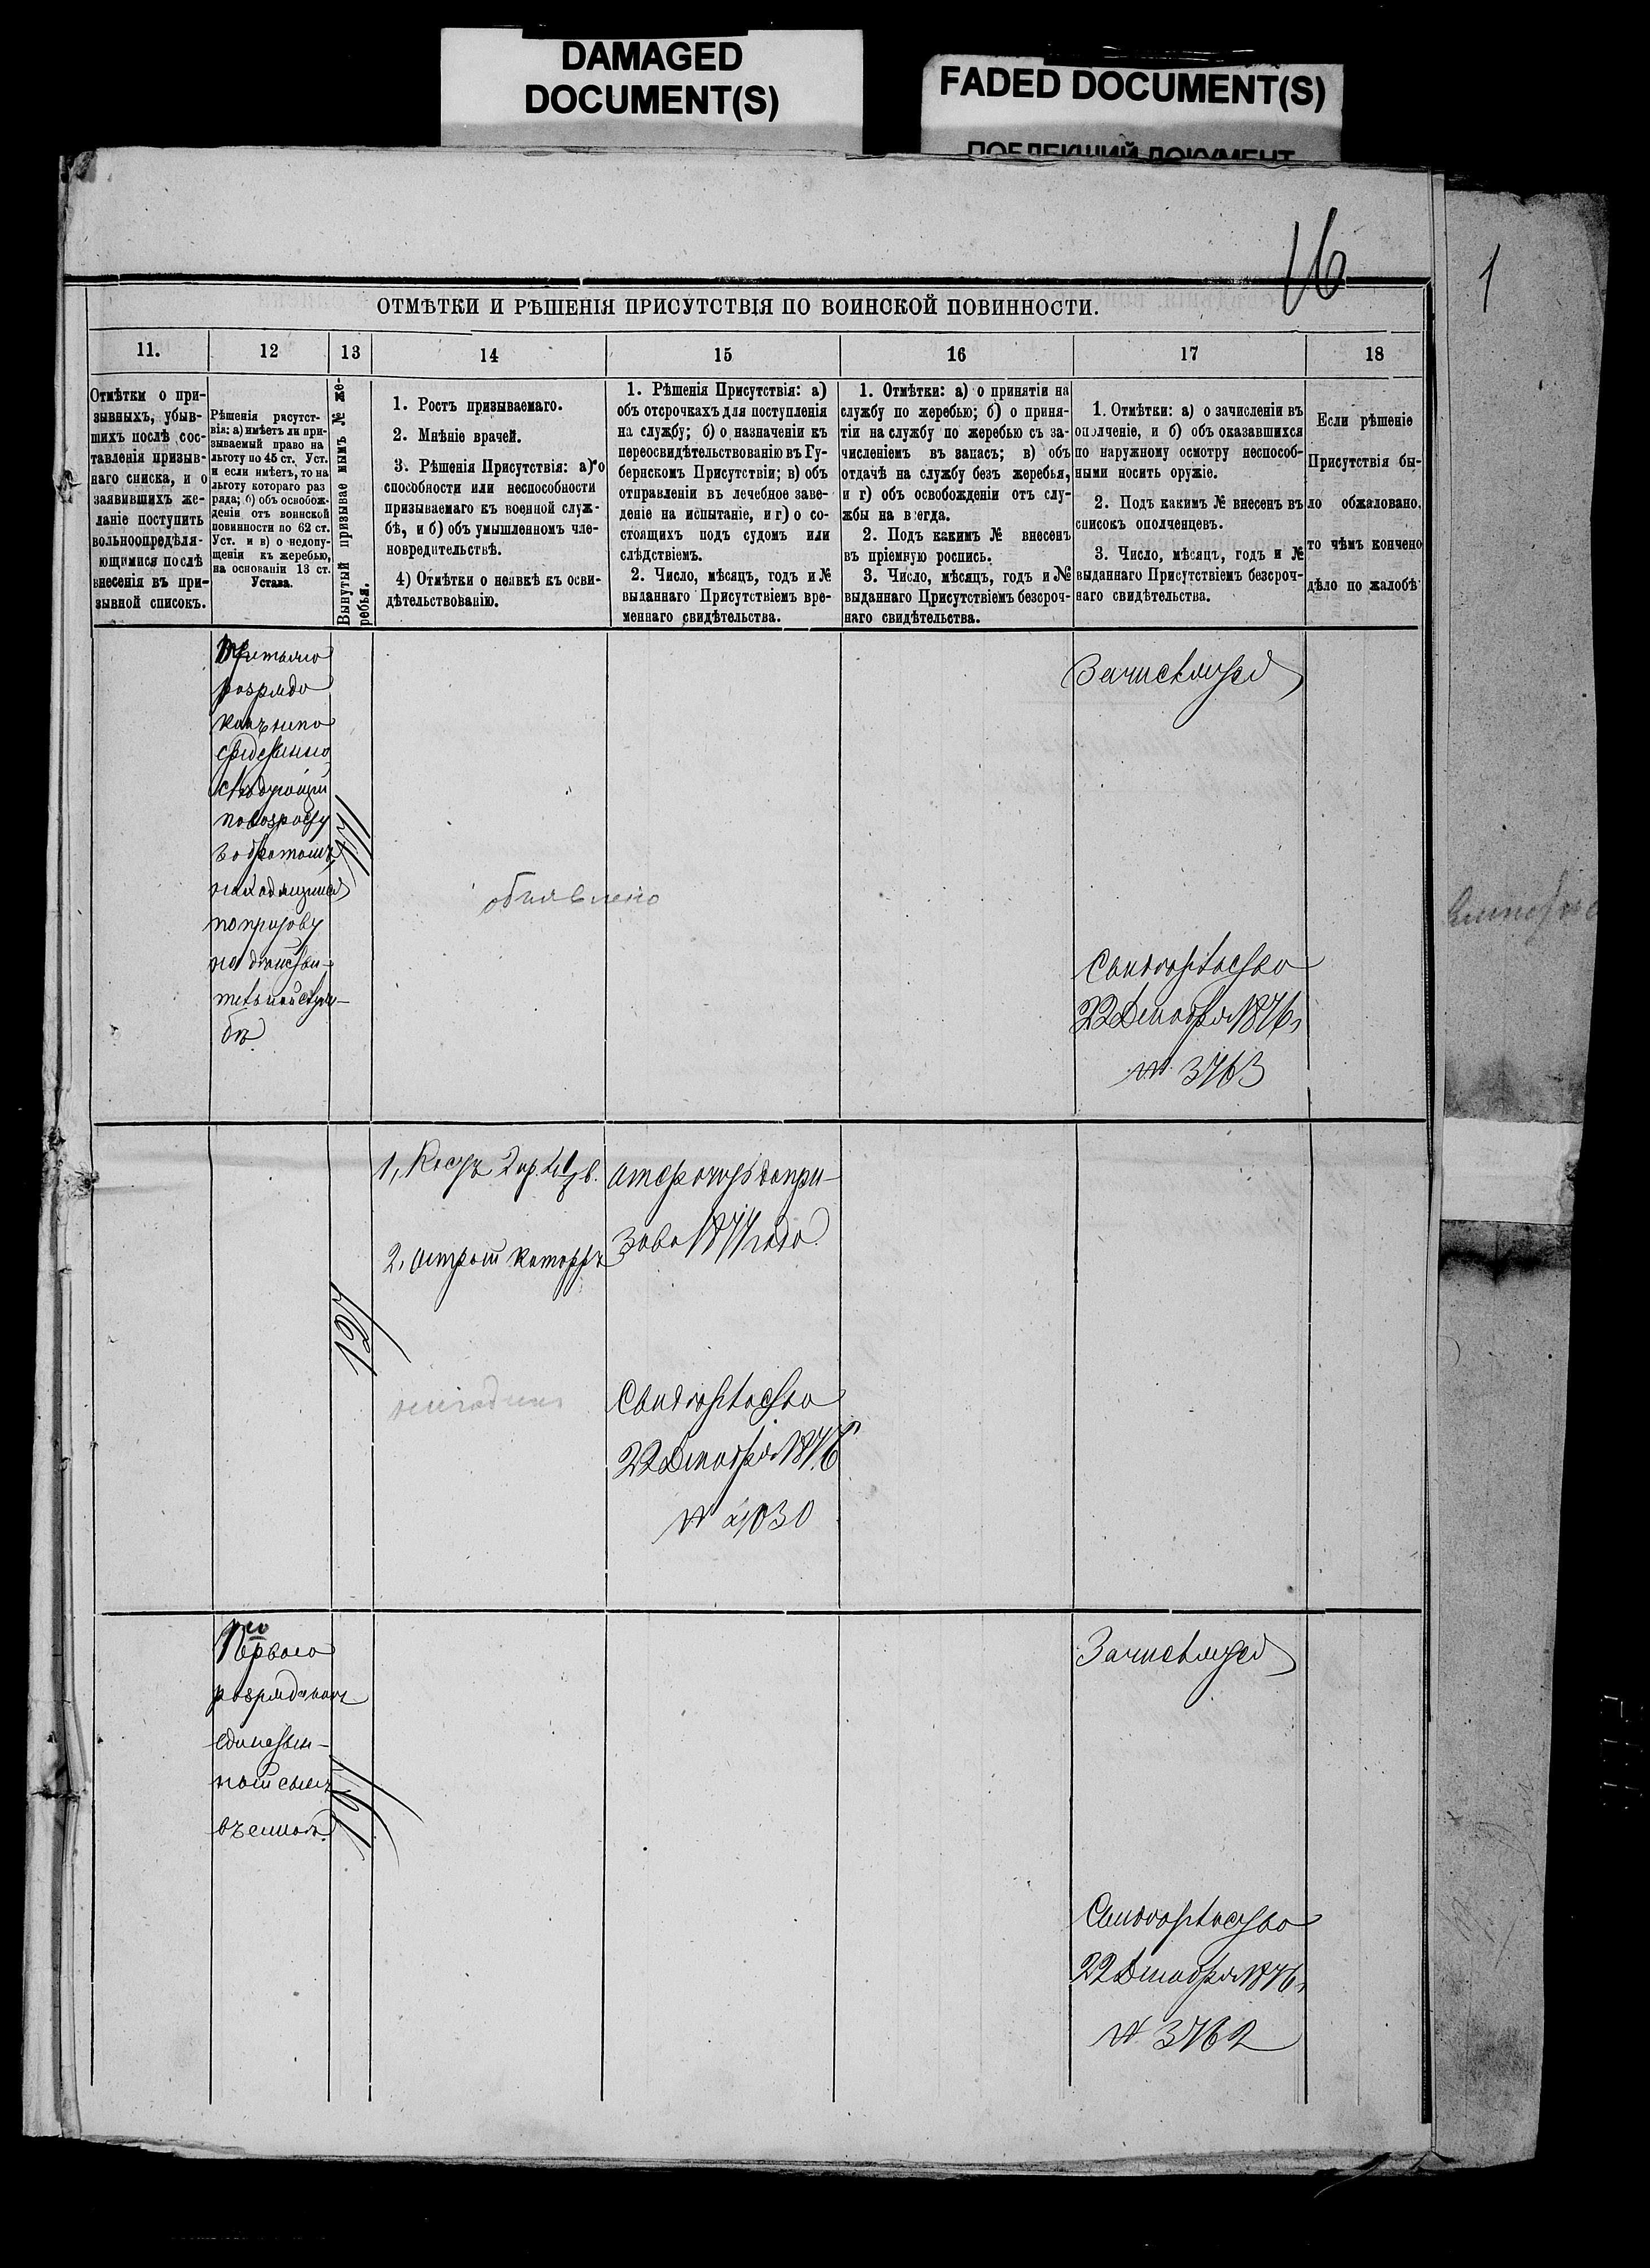 DAMAGED
DOCUMENT(S)
FADED DOCUMENT(S)
ПОБЛЕКШИЙ ДОКУМЕНТ
16
1
ОТМѢТКИ И РѢШЕНІЯ ПРИСУТСТВІЯ ПО ВОИНСКОЙ ПОВИННОСТИ.
11.
12
13
14
15
16
17
18
Отмѣтки о при-
зывныхъ, убыв-
шихъ послѣ сос-
тавленія призыв-
наго списка, и о
заявившихъ же-
ланіе поступить
вольноопредѣля-
ющимися послѣ
внесенія въ при-
зывной списокъ.
Рѣшенія рисутст-
вія: а) имѣетъ ли при-
зываемый право на
льготу по 45 ст. Уст.
и если имѣетъ, то на
льготу котораго раз
ряда; б) объ освобож-
деніи отъ воинской
повинности по 62 ст.
Уст. и в) о недопу-
щеніи къ жеребью,
на основаніи 13 ст.
Устава.
Вынутый призывае мымъ № же-
ребья.
1. Ростъ призываемаго.
2. Мнѣніе врачей.
3. Рѣшенія Присутствія: а) о
способности или неспособности
призываемаго къ военной служ-
бѣ, и б) объ умышленномъ чле-
новредительствѣ.
4) Отмѣтки о неявкѣ къ осви-
дѣтельствованію.
1. Рѣшенія Присутствія: а)
объ отсрочкахъ для поступленія
на службу; б) о назначеніи къ
переосвидѣтельствованію въ Гу-
бернскомъ Присутствіи; в) объ
отправленіи въ лечебное заве-
деніе на испытаніе, и г) о со-
стоящихъ подъ судомъ или
слѣдствіемъ.
2. Число, мѣсяцъ, годъ и №
выданнаго Присутствіемъ вре-
меннаго свидѣтельства.
1. Отмѣтки: а) о принятіи на
службу по жеребью; б) о приня-
тіи на службу по жеребью съ за-
численіемъ въ запасъ; в) объ
отдачѣ на службу безъ жеребья,
и г) объ освобожденіи отъ слу-
жбы на всегда.
2. Подъ какимъ № внесенъ
въ пріемную роспись.
3. Число, мѣсяцъ, годъ и №
выданнаго Присутствіемъ безсроч-
наго свидѣтельства.
1. Отмѣтки: а) о зачисленіи въ
ополченіе, и б) объ оказавшихся
по наружному осмотру неспособ-
ными носить оружіе.
2. Подъ какимъ № внесенъ въ
списокъ ополченцевъ.
3. Число, мѣсяцъ, годъ и №
выданнаго Присутствіемъ безсроч-
наго свидѣтельства.
Если рѣшеніе
Присутствія бы-
ло обжаловано,
то чѣмъ кончено
дѣло по жалобѣ
Третьяго
разряда
какъ непо
средственно
слѣдующій
по возрасту
за братомъ
находящимся
по призыву
на дѣйстви-
тельной служ-
бѣ.
объявлено
Зачисляется
Свидѣтельство
22 Декабря 1876 г
№ 3763
127
1, Ростъ 2 ар. 4 1/8 в.
2, острый катарръ
отсрочить до при-
зыва 1877 года.
Свидѣтельство
22 Декабря 1876 г
№ 4030
Перваго
разряда какъ
единствен-
ный сынъ
въ семьѣ.
197
Зачисляется
Свидѣтельство
22 Декабря 1876 г
№ 3762